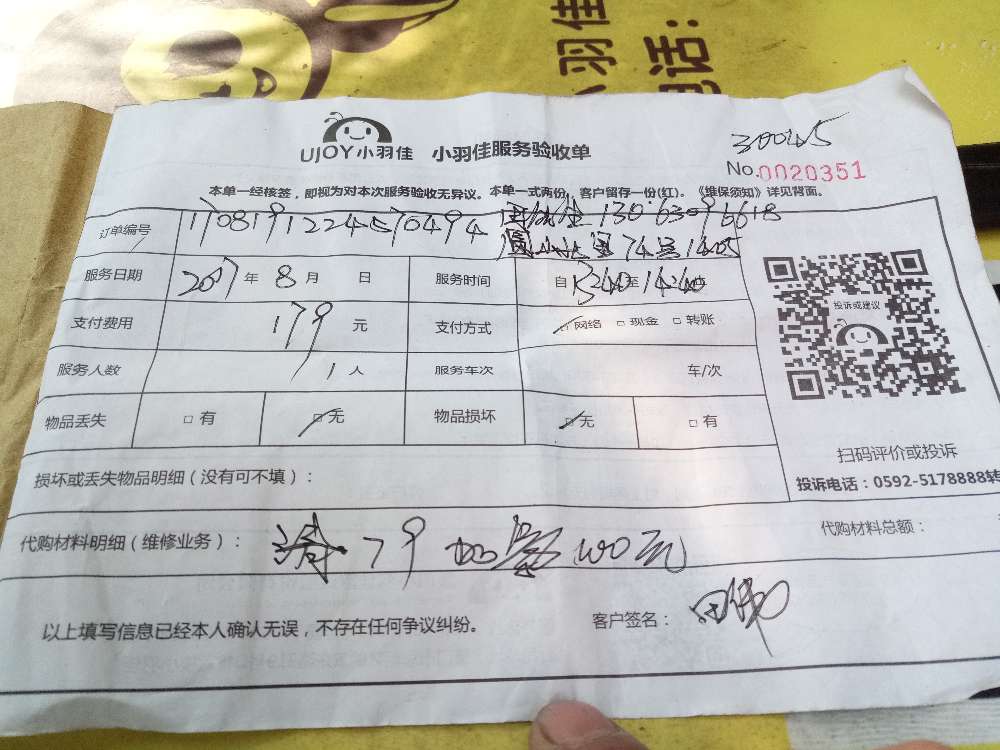 小羽佳
电话：
UJOY小羽佳 小羽佳服务验收单
300425
No.0020351
本单一经核签，即视为对本次服务验收无异议。本单一式两份，客户留存一份(红)。《维保须知》详见背面。
订单编号 170819122457049 4 13063096618
74号1405
服务日期 2017年 8月 日 服务时间 自1340至1440
支付费用 179 元 支付方式 □网络 □现金 □转账
服务人数 1 人 服务车次 车/次
物品丢失 □有 □无 物品损坏 □无 □有
投诉或建议
扫码评价或投诉
投诉电话：0592-5178888转
损坏或丢失物品明细（没有可不填）：
代购材料明细（维修业务）： 清79 加氨100元
代购材料总额：
以上填写信息已经本人确认无误，不存在任何争议纠纷。 客户签名：